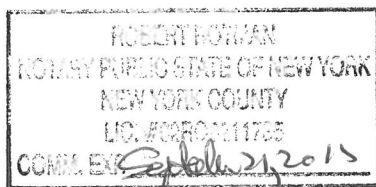 ROBERT
NOTARY PUBLIC STATE OF NEW YORK
NEW YORK COUNTY
LIC.
COMM. EXP. September 21, 2013